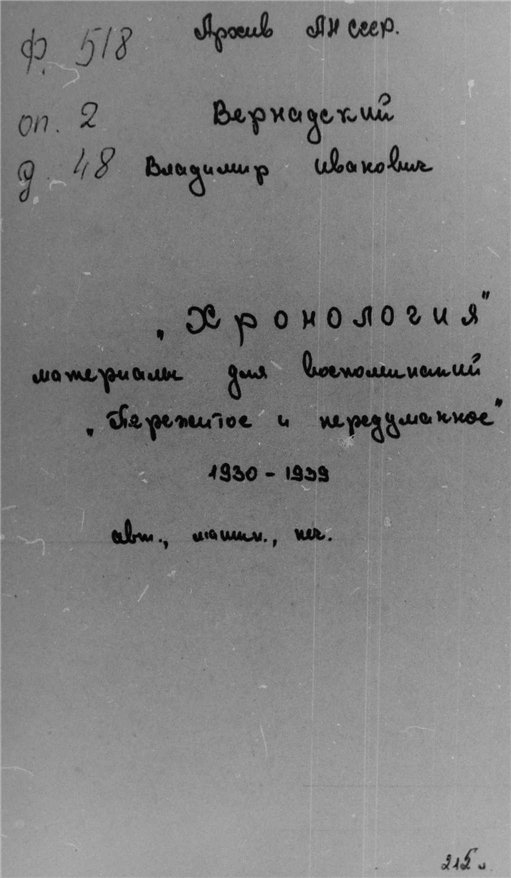 Архив АН СССР.
Ф. 518
оп. 2
Вернадский
д. 48
Владимир Иванович
„Хронология"
материалы для воспоминаний
„Пережитое и передуманное"
1930 - 1939
авт., машин., печ.
215 л.